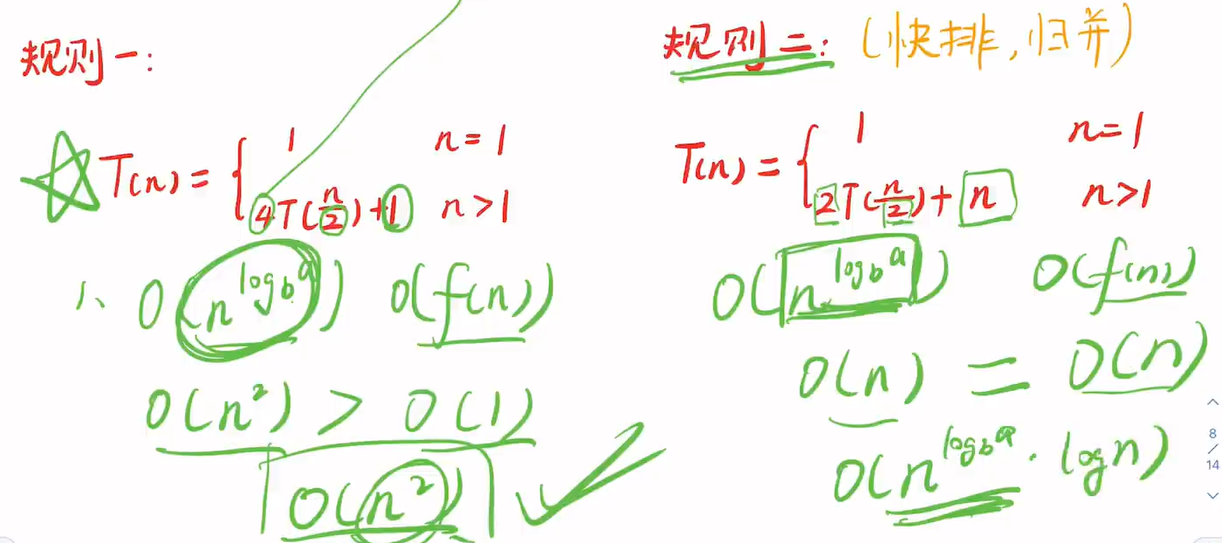 规则一:
T(n) = { 1 n = 1
4T(n/2) + 1 n > 1
1、 O(n^{log_b a}) O(f(n))
O(n²) > O(1)
O(n²)
规则二: (快排, 归并)
T(n) = { 1 n = 1
2T(n/2) + n n > 1
O(n^{log_b a}) O(f(n))
O(n) = O(n)
O(n^{log_b a} · logn)
8
/
14